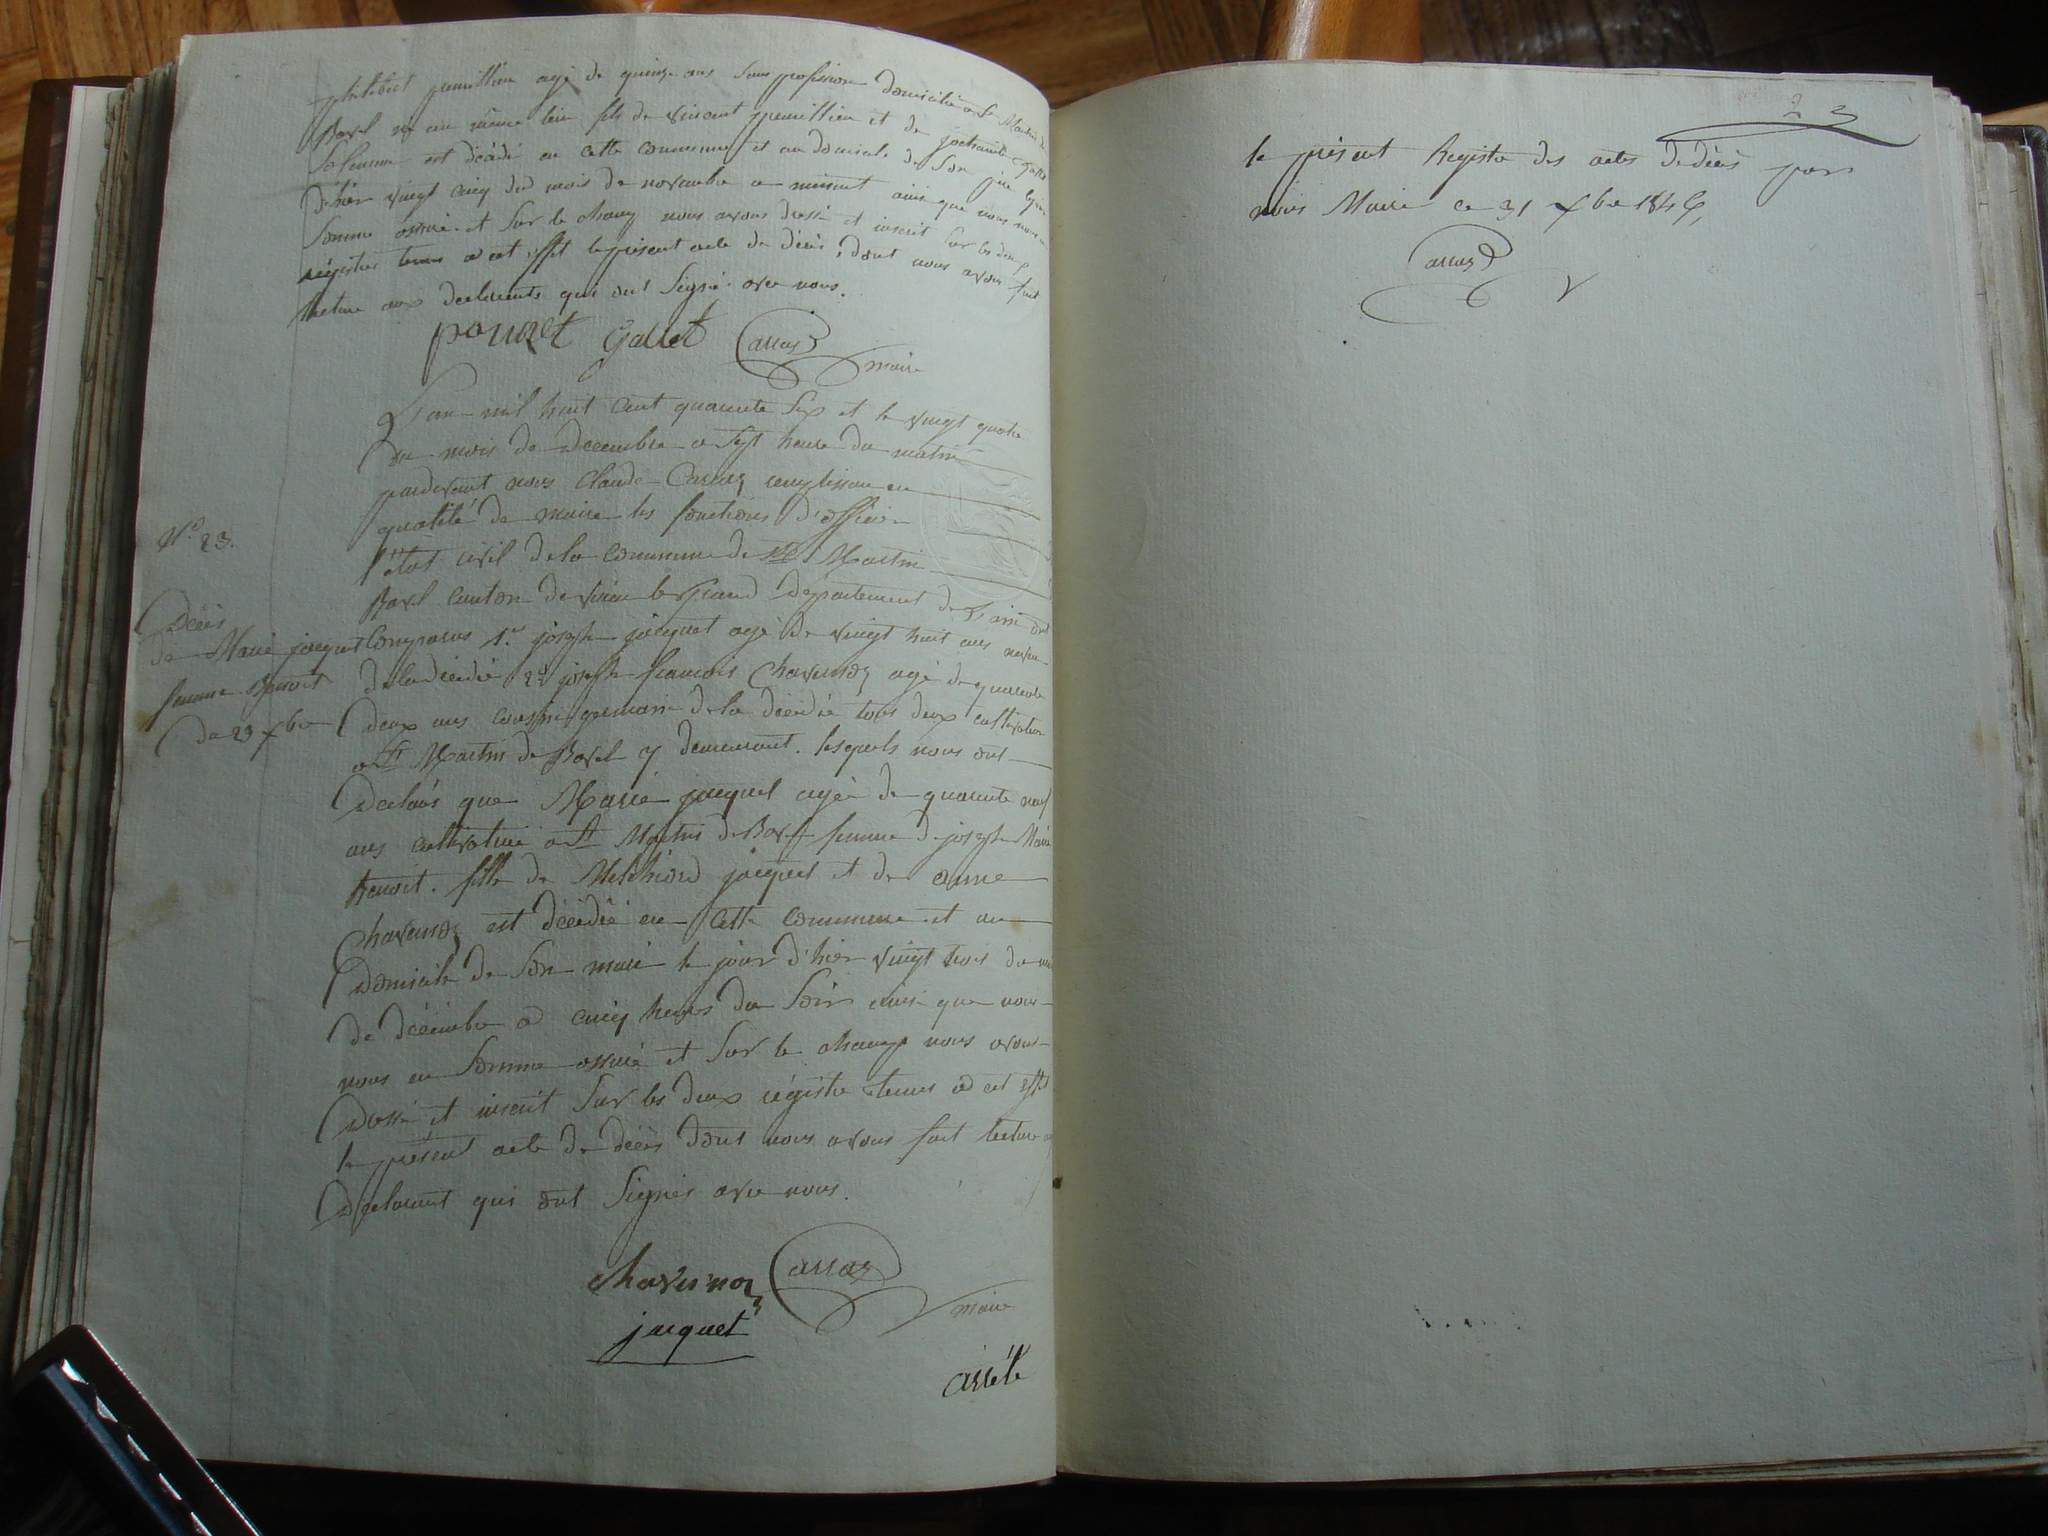 philibert pemillieu agé de quinze ans sans profession domicilié a St Martin de
Bavel né au même lieu fils de vincent pemillieu et de
est décédé en cette commune et au domicile de Son père
d'hier vingt cinq du mois de novembre a minuit ainsi que nous nous
Somme assuré. et Sur le champ nous avons dressé et inscrit Sur les deux
régistres tenus a cet effet le présent acte de décès, dont nous avons fait
lecture aux declarants qui ont Signé avec nous.
pouzet Gallet Carraz
maire
L'an mil huit cent quarente Six et le vingt quatre
du mois de decembre a Sept heure du matin
pardevant nous Claude Carraz remplissan en
qualité de maire les fonctions d'officier
l'état civil de la commune de St Martin
Bavel canton de virieu le grand département de L'ain ont
N° 23.
Décès
de Marie jacquet
femme Benoit
du 23 Xbre
Comparus 1er joseph jacquet agé de vingt huit ans neveu
de la décédée 2d joseph françois Chavernoz agé de quarente
deux ans cousin germain de la décédée tous deux cultivateur
a St Martin de Bavel y demeurant. lesquels nous ont
declarés que Marie jacquet agée de quarente neuf
ans cultivatrice a St Martin de Bavel femme de joseph Marie
benoit. fille de Melchiord jacquet et de anne
Chavernoz est décédée en cette commune et au
domicile de Son mari le jour d'hier vingt trois du mois
de décembre a cinq heures du Soir ainsi que nous
nous en Somme assuré et Sur le champ nous avons
dressé et inscrit Sur les deux régistre tenus a cet effet
le présent acte de décès dont nous avons fait lecture
declarant qui ont Signés avec nous.
chavernoz Carraz
maire
jacquet
arrêté
23
le présent Registre des actes de décès par
nous Maire ce 31 Xbre 1846,
Carraz